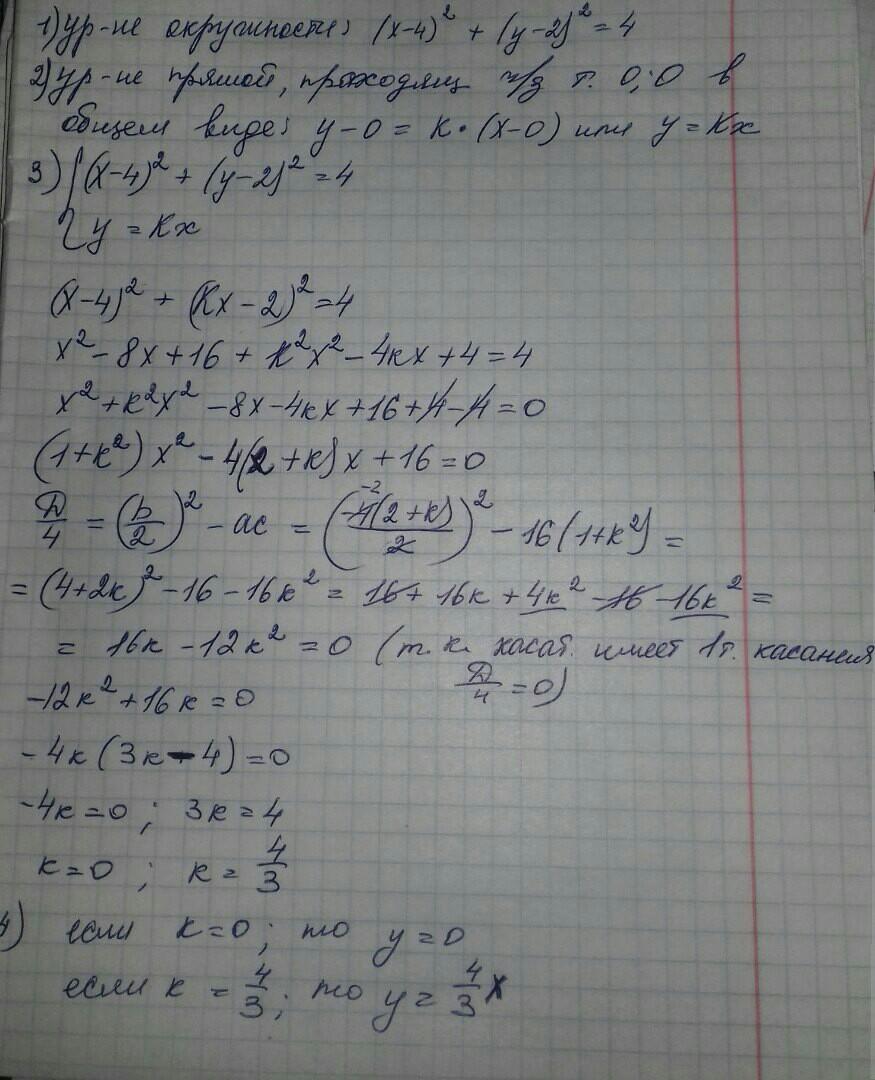 1) ур-не окружности: (x-4)² + (y-2)² = 4
2) ур-не прямой, проходящ ч/з т. 0;0 в
общем виде: y-0 = k·(x-0) или y = kx
3) { (x-4)² + (y-2)² = 4
y = kx
(x-4)² + (kx-2)² = 4
x² - 8x + 16 + k²x² - 4kx + 4 = 4
x² + k²x² - 8x - 4kx + 16 + 4 - 4 = 0
(1+k²)x² - 4(2+k)x + 16 = 0
D/4 = (b/2)² - ac = (-4(2+k)/2)² - 16(1+k²) =
-2
= (4+2k)² - 16 - 16k² = 16 + 16k + 4k² - 16 - 16k² =
= 16k - 12k² = 0 (т.к. касат. имеет 1 т. касания
D/4 = 0)
-12k² + 16k = 0
-4k(3k-4) = 0
-4k = 0; 3k = 4
k = 0; k = 4/3
4) если k = 0; то y = 0
если k = 4/3; то y = 4/3 x